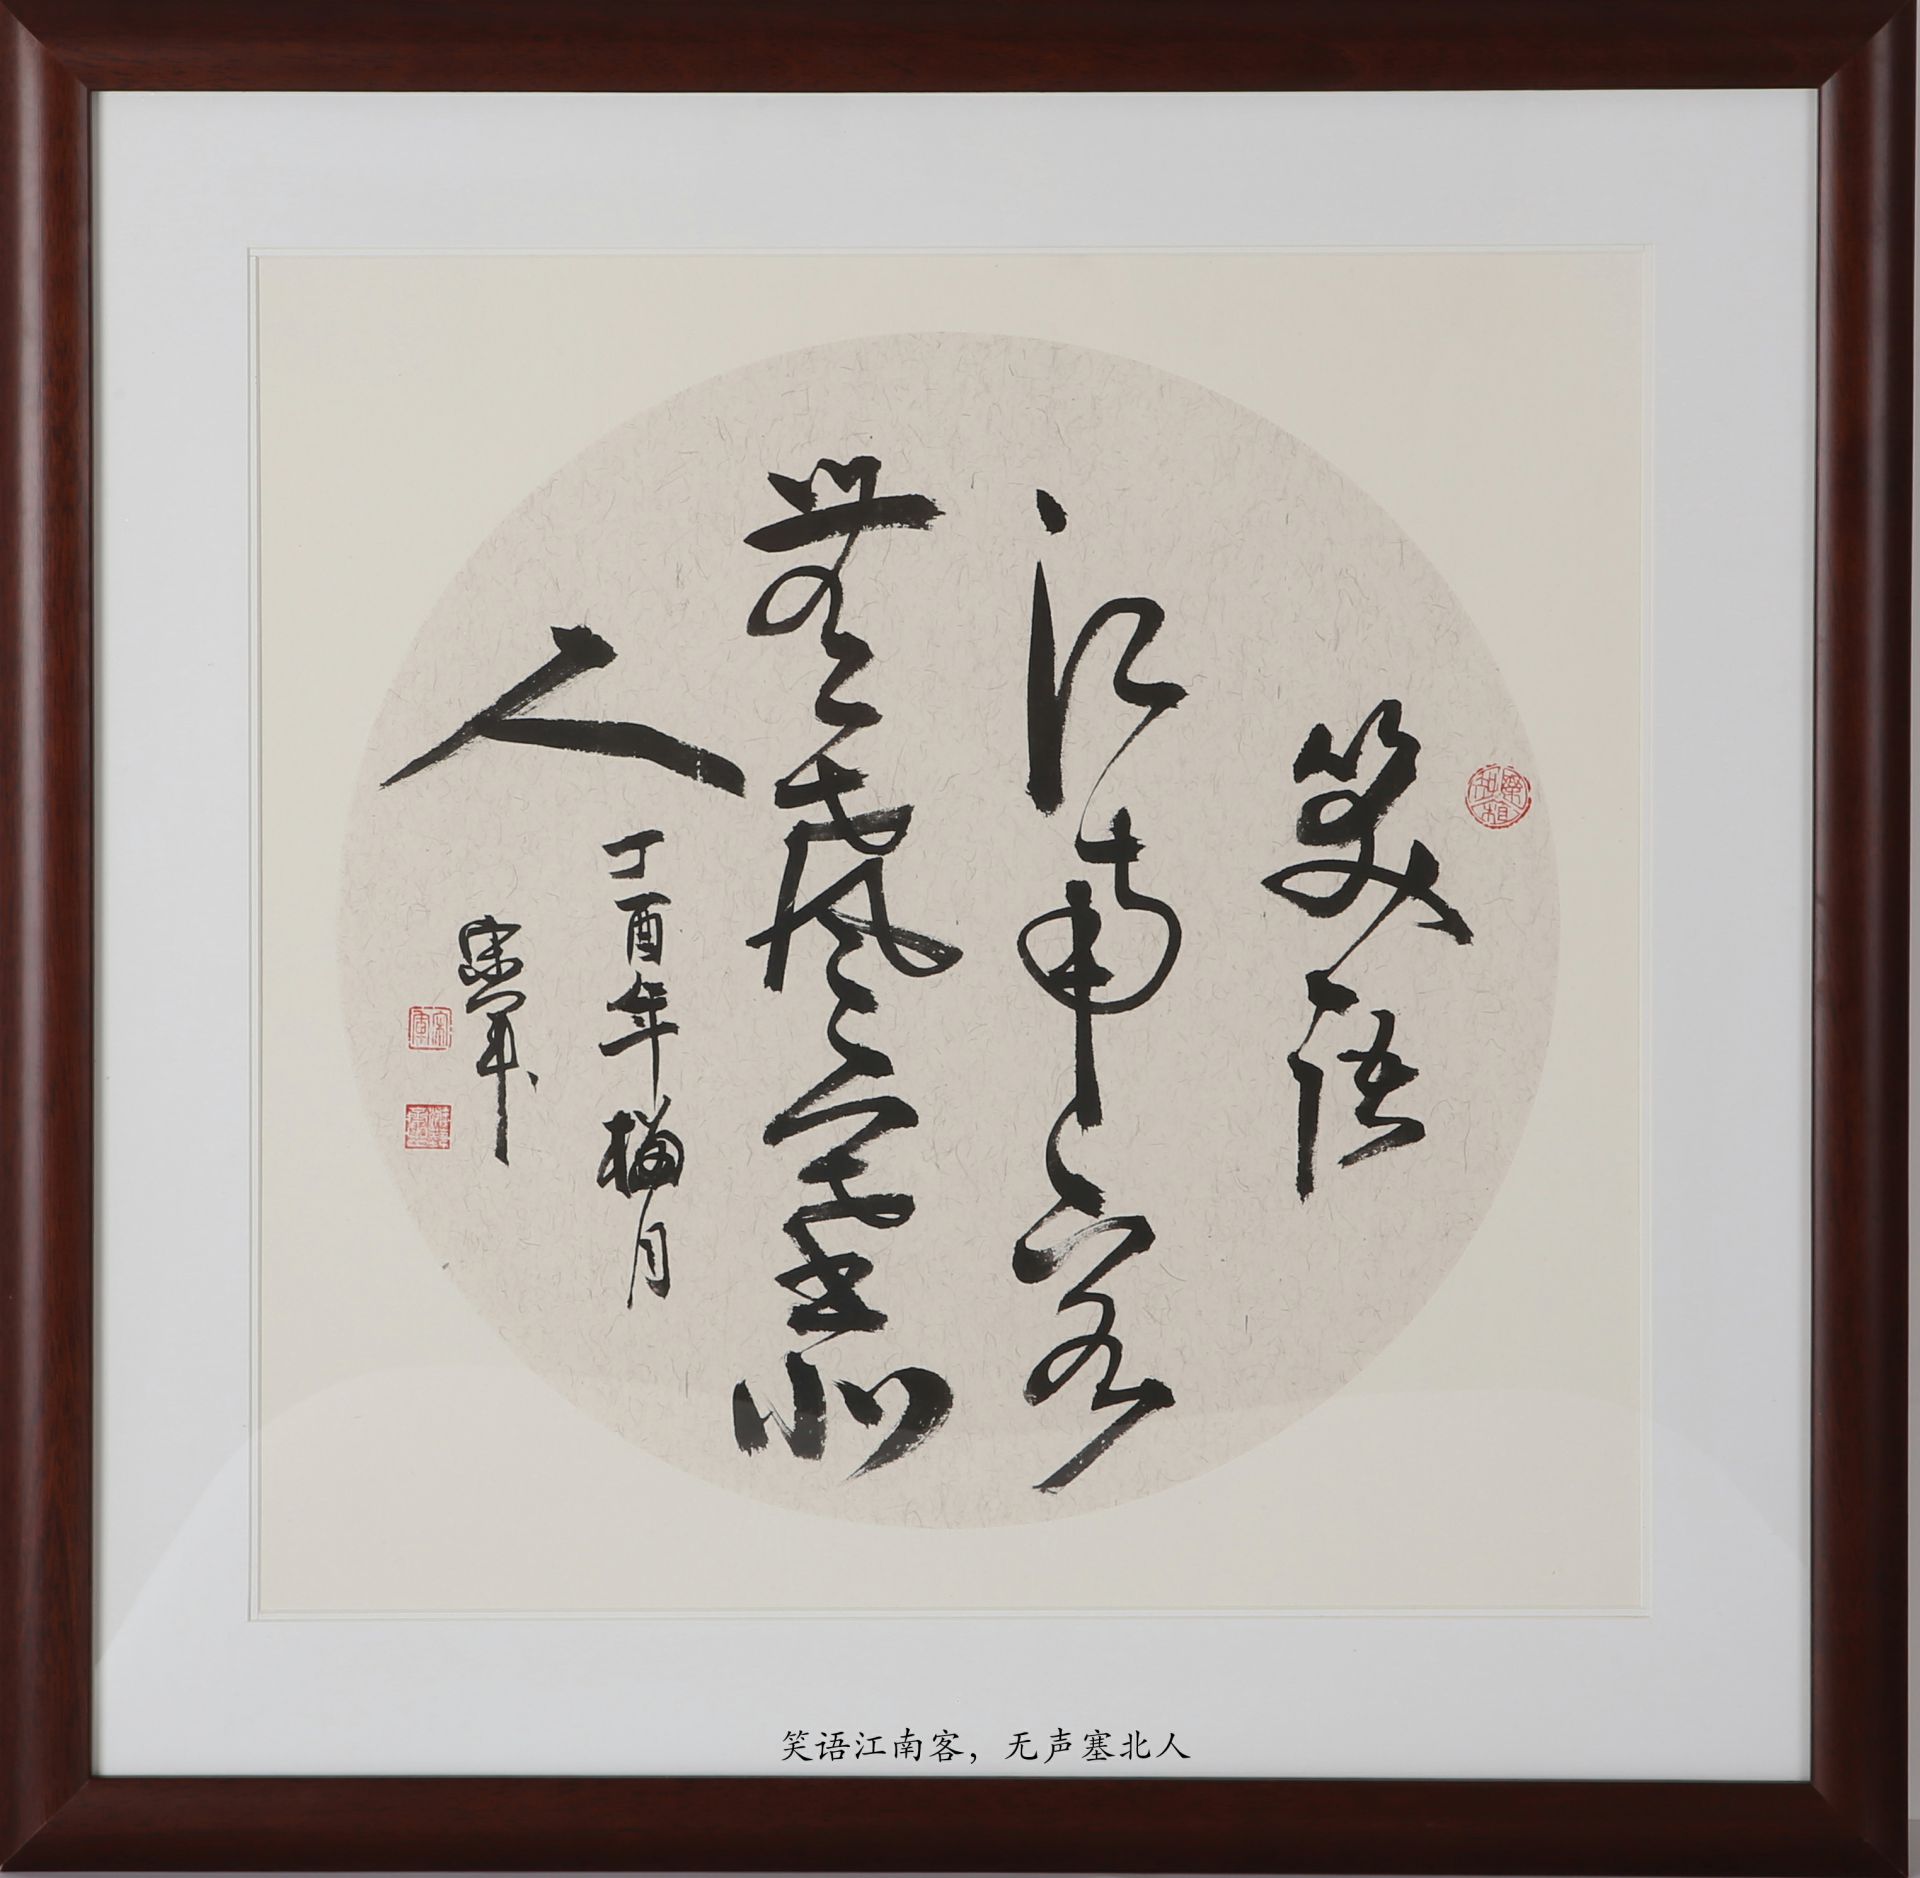 笑語
江南客
無聲塞北
人
丁酉年梅月
笑语江南客，无声塞北人